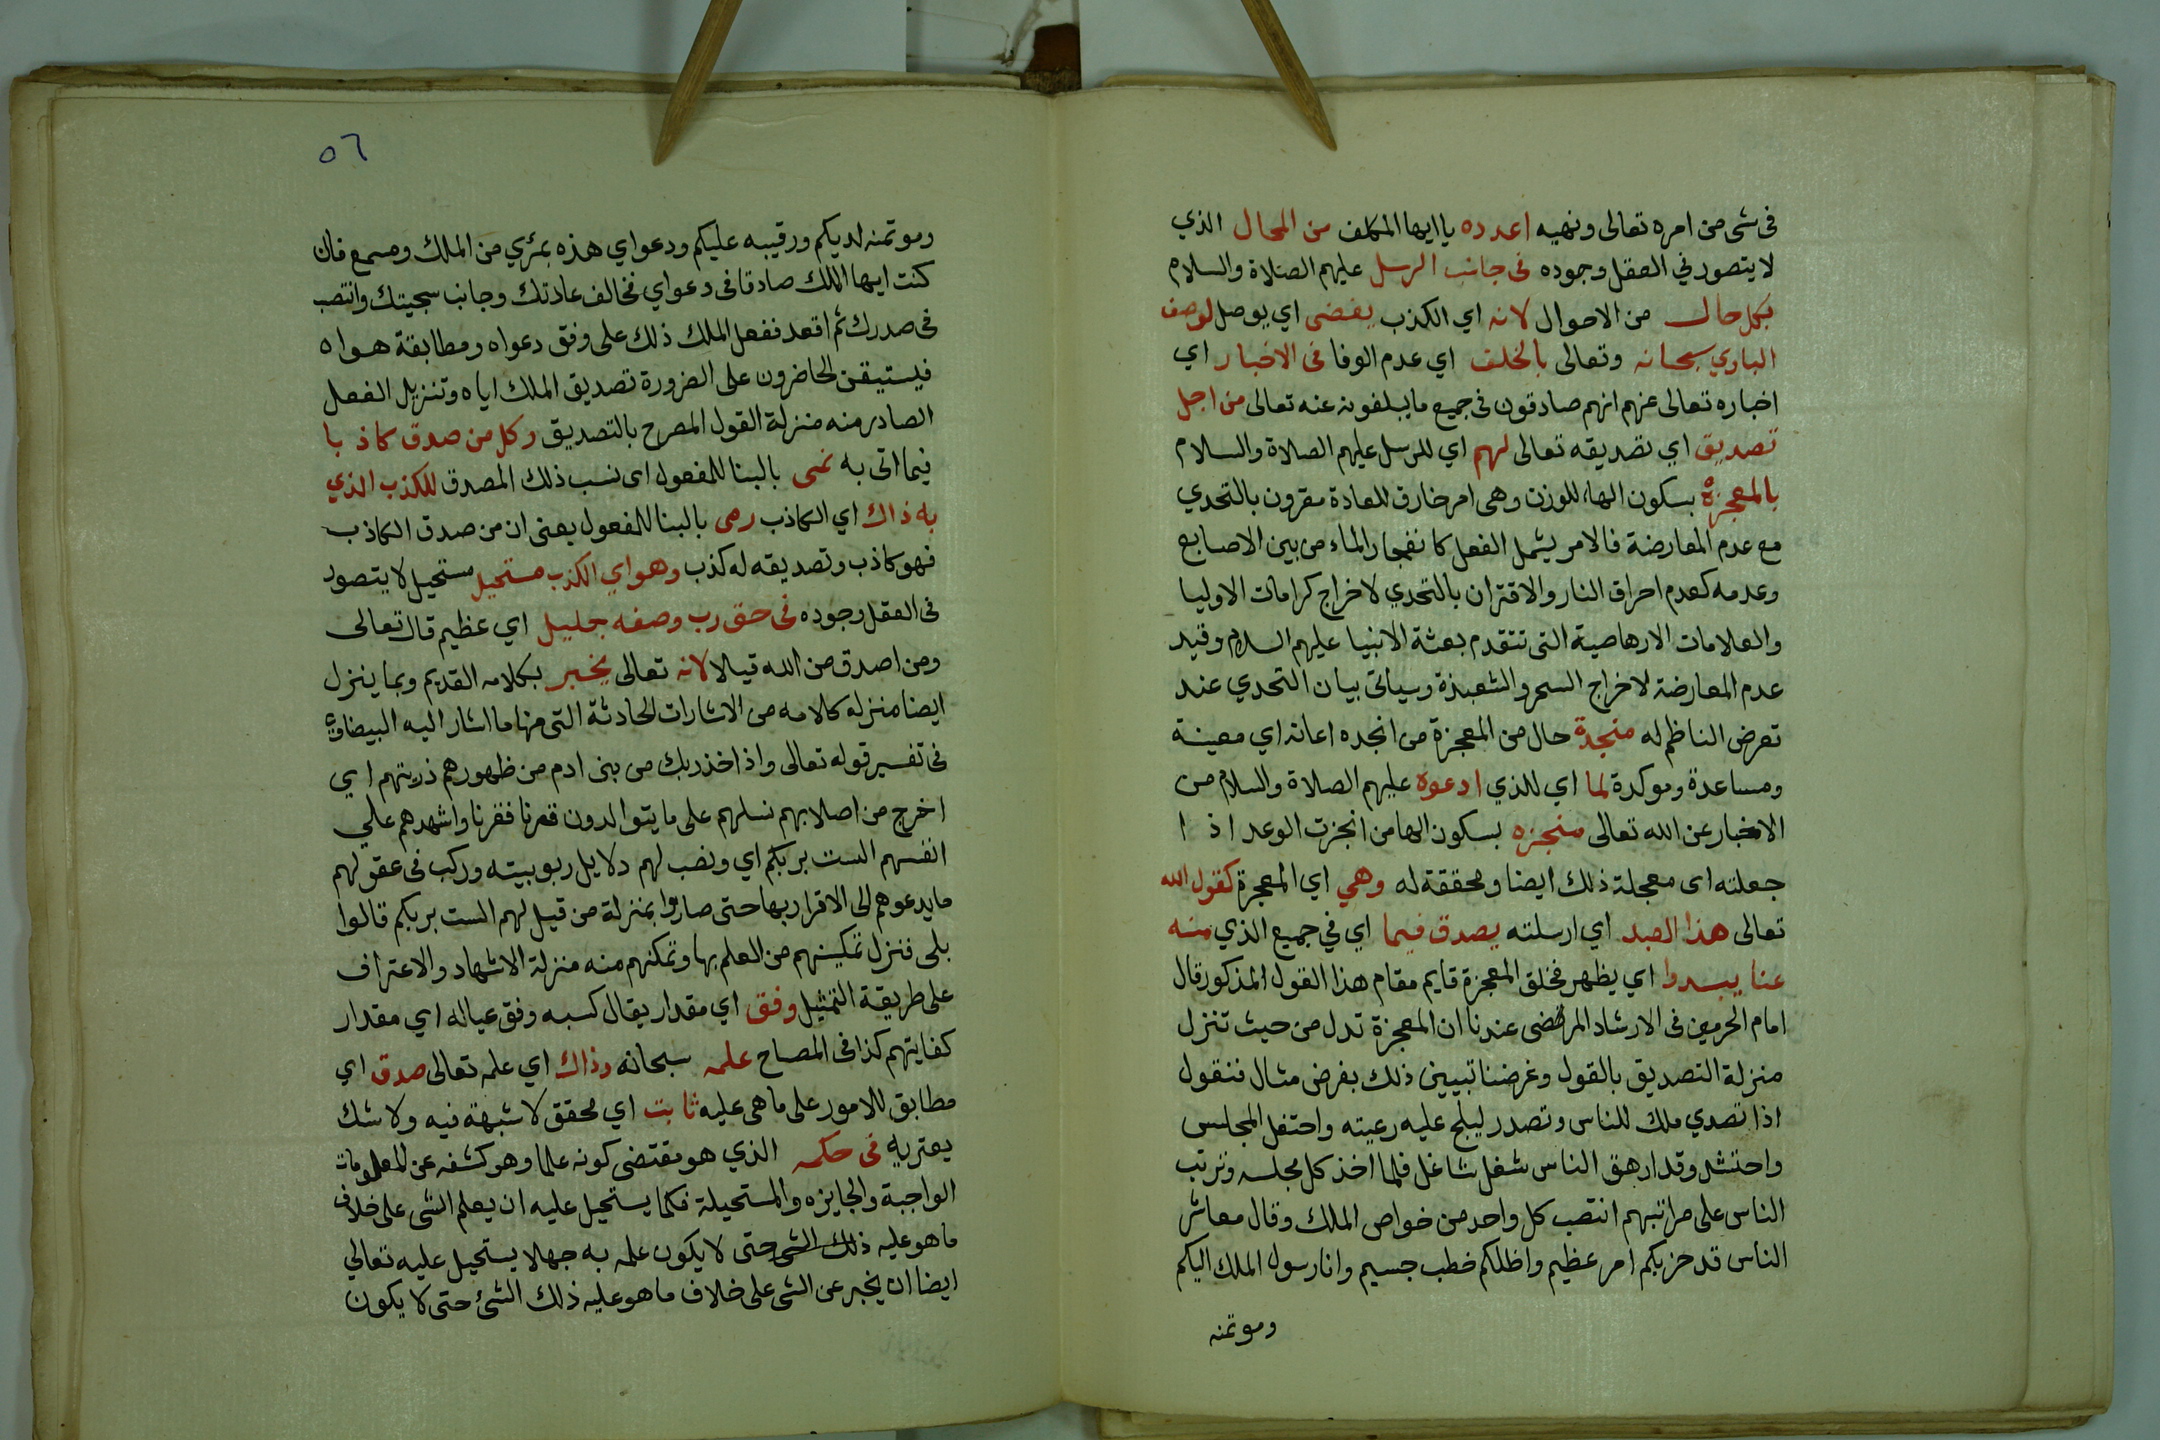 فى شى من امره تعالى ونهيه اعدده يا ايها المكلف من المحال الذي
لا يتصور في العقل وجوده فى جانب الرسل عليهم الصلاة والسلام
بكل حال من الاحوال لانه اي الكذب يفضى اي يوصل لوصف
الباري سبحانه وتعالى بالخلف اي عدم الوفا فى الاخبار اي
اخباره تعالى عنهم انهم صادقون فى جميع ما يبلغونه عنه تعالى من اجل
تصديق اي تصديقه تعالى لهم اي للرسل عليهم الصلاة والسلام
بالمعجزه بسكون الهاء للوزن وهى امر خارق للعادة مقرون بالتحدي
مع عدم المعارضة فالامر يشمل الفعل كانفجار الماء من بين الاصابع
وعدمه كعدم احراق النار والاقتران بالتحدي لاخراج كرامات الاوليا
والعلامات الارهاصية التى تتقدم بعثة الانبيا عليهم السلام وقيد
عدم المعارضة لاخراج السحر والشعبذة وسياتى بيان التحدي عند
تعرض الناظم له منجدة حال من المعجزة من انجده اعانه اي معينة
ومساعدة وموكدة لما اي للذي ادعوه عليهم الصلاة والسلام من
الاخبار عن الله تعالى منجزه بسكون الها من انجزت الوعد اذا
جعلته اى معجلة ذلك ايضا ومحققة له وهي اي المعجزة كقول الله
تعالى هذا العبد اي ارسلته يصدق فيما اي في جميع الذي منه
عنا يبدوا اي يظهر فخلق المعجزة قايم مقام هذا القول المذكور قال
امام الحرمين فى الارشاد المرضى عندنا ان المعجزة تدل من حيث تنزل
منزلة التصديق بالقول وغرضنا تبيين ذلك بفرض مثال فنقول
اذا تصدي ملك للناس وتصدر ليلج عليه رعيته واحتفل المجلس
واحتشد وقد ارهق الناس شغل شاغل فلما اخذ كل مجلسه وترتب
الناس على مراتبهم انتصب كل واحد من خواص الملك وقال معاشر
الناس قد حزبكم امر عظيم واظلكم خطب جسيم وانا رسول الملك اليكم
وموتمنه
٥٦
وموتمنه لديكم ورقيبه عليكم ودعواي هذه بمرئ من الملك ومسمع فان
كنت ايها الملك صادقا فى دعواي فخالف عادتك وجانب سجيتك وانتصب
فى صدرك ثم اقعد ففعل الملك ذلك على وفق دعواه ومطابقة هواه
فيستيقن الحاضرون على الضرورة تصديق الملك اياه وتنزيل الفعل
الصادر منه منزلة القول المصرح بالتصديق وكل من صدق كاذبا
فيما اتى به نمى بالبنا للمفعول اى نسب ذلك المصدق للكذب الذي
به ذاك اي الكاذب رمى بالبنا للمفعول يعنى ان من صدق الكاذب
فهو كاذب وتصديقه له كذب وهو اي الكذب مستحيل مستحيل لا يتصور
فى العقل وجوده فى حق رب وصفه جليل اي عظيم قال تعالى
ومن اصدق من الله قيلا لانه تعالى يخبر بكلامه القديم وبما ينزل
ايضا منزله كلامه من الاشارات الحادثة التى منها ما اشار اليه البيضاوي
فى تفسير قوله تعالى واذ اخذ ربك من بنى ادم من ظهورهم ذريتهم اي
اخرج من اصلابهم نسلهم على ما يتوالدون قرنا فقرنا واشهدهم علي
انفسهم الست بربكم اي ونصب لهم دلايل ربوبيته وركب فى عقولهم
ما يدعوهم الى الاقرار بها حتى صاروا بمنزلة من قيل لهم الست بربكم قالوا
بلى فنزل تمكينهم من العلم بها وتمكنهم منه منزلة الاشهاد والاعتراف
على طريقة التمثيل وفق اي مقدار يقال كسبه وفق عياله اي مقدار
كفايتهم كذا فى المصباح علمه سبحانه وذاك اي علمه تعالى صدق اي
مطابق للامور على ما هى عليه ثابت اي محقق لا شبهة فيه ولا شك
يعتريه فى حكمه الذي هو مقتضى كونه علما وهو كشفه عن المعلومات
الواجبة والجايزه والمستحيلة فكما يستحيل عليه ان يعلم الشى على خلاف
ما هو عليه ذلك الشى حتى لا يكون علمه به جهلا يستحيل عليه تعالي
ايضا ان يخبر عن الشى على خلاف ما هو عليه ذلك الشئ حتى لا يكون